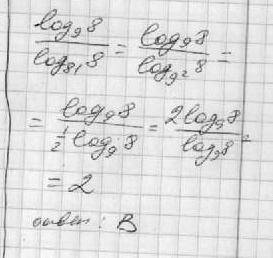 log₉8 / log₈₁8 = log₉8 / log₉²8 =
= log₉8 / ½log₉8 = 2log₉8 / log₉8
= 2
ответ: В